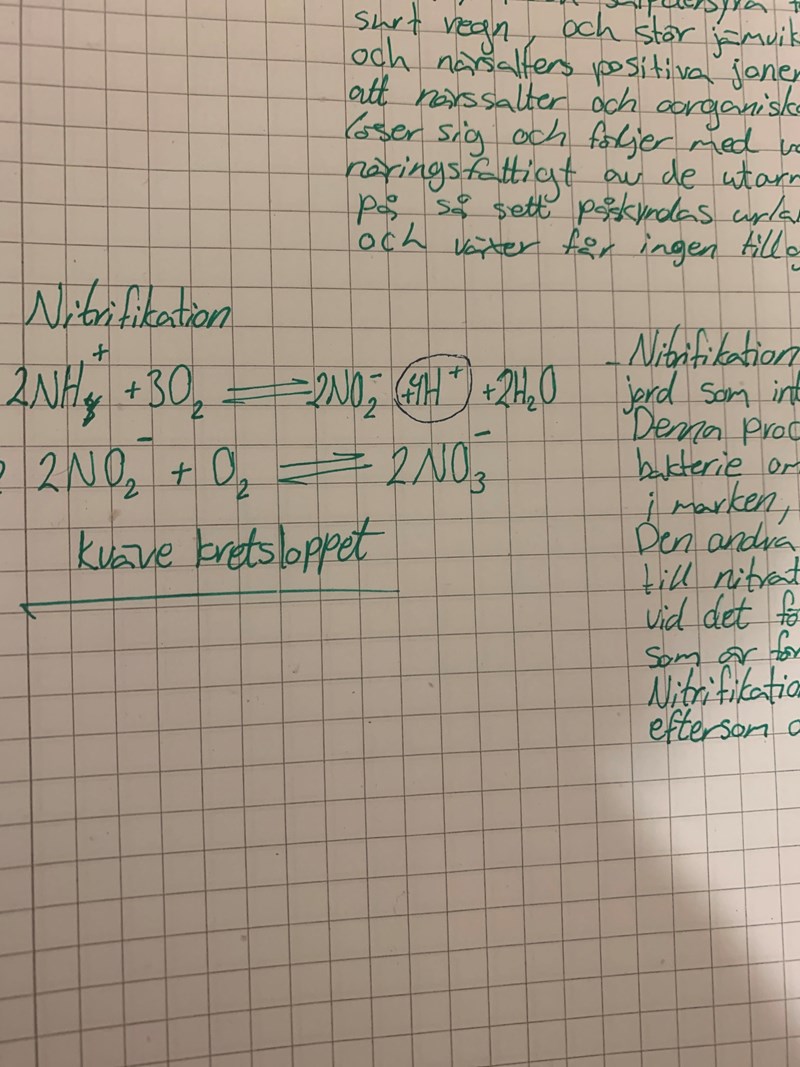 surt regn, och stör jämvik
och närsalters positiva joner
att närssalter och oorganiska
löser sig och följer med v
näringsfattigt av de utarm
på så sett påskyndas urla
och växter får ingen tillg
Nitrifikation
2NH₄⁺ + 3O₂ ⇌ 2NO₂⁻ +4H⁺ +2H₂O
2NO₂⁻ + O₂ ⇌ 2NO₃⁻
kväve kretsloppet
- Nitrifikation
jord som int
Denna proc
bakterie om
i marken,
Den andra
till nitrat
vid det fö
som är för
Nitrifikatio
eftersom